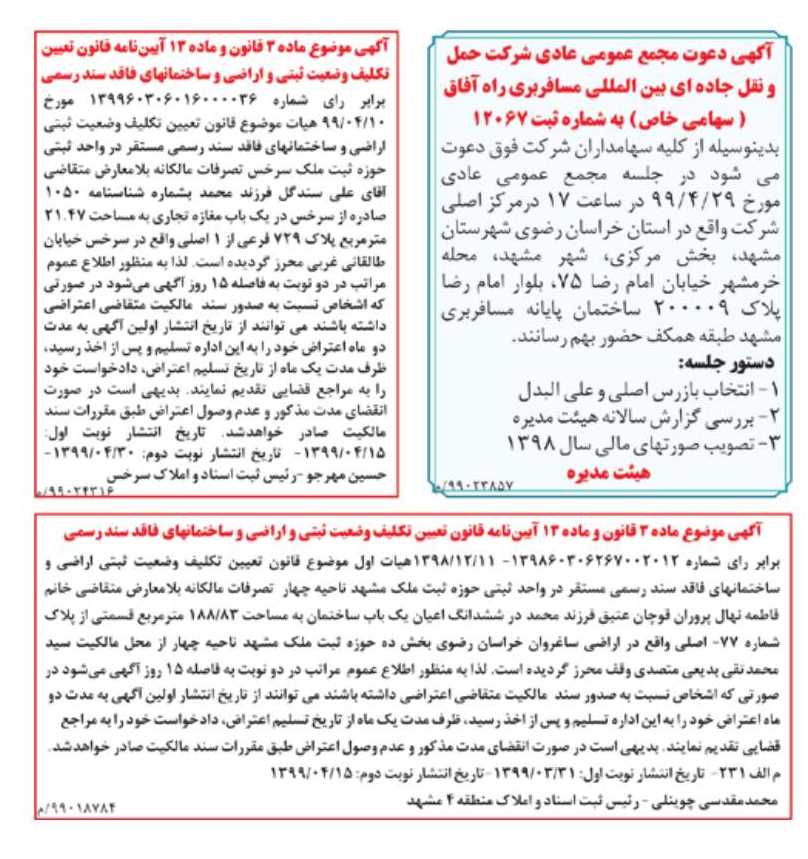 آگهی دعوت مجمع عمومی عادی شرکت حمل
و نقل جاده ای بین المللی مسافربری راه آفاق
( سهامی خاص ) به شماره ثبت ۱۲۰۶۷
بدینوسیله از کلیه سهامداران شرکت فوق دعوت
می شود در جلسه مجمع عمومی عادی
مورخ ۹۹/۴/۲۹ در ساعت ۱۷ درمرکز اصلی
شرکت واقع در استان خراسان رضوی شهرستان
مشهد، بخش مرکزی، شهر مشهد، محله
خرمشهر خیابان امام رضا ۷۵، بلوار امام رضا
پلاک ۲۰۰۰۰۹ ساختمان پایانه مسافربری
مشهد طبقه همکف حضور بهم رسانند.
دستور جلسه:
۱- انتخاب بازرس اصلی و علی البدل
۲- بررسی گزارش سالانه هیئت مدیره
۳- تصویب صورتهای مالی سال ۱۳۹۸
هیئت مدیره
۹۹۰۲۳۸۵۷/م
آگهی موضوع ماده ۳ قانون و ماده ۱۳ آیین‌نامه قانون تعیین
تکلیف وضعیت ثبتی و اراضی و ساختمانهای فاقد سند رسمی
برابر رای شماره ۱۳۹۹۶۰۳۰۶۰۱۶۰۰۰۰۳۶ مورخ
۹۹/۰۴/۱۰ هیات موضوع قانون تعیین تکلیف وضعیت ثبتی
اراضی و ساختمانهای فاقد سند رسمی مستقر در واحد ثبتی
حوزه ثبت ملک سرخس تصرفات مالکانه بلامعارض متقاضی
آقای علی سندگل فرزند محمد بشماره شناسنامه ۱۰۵۰
صادره از سرخس در یک باب مغازه تجاری به مساحت ۲۱.۴۷
مترمربع پلاک ۷۲۹ فرعی از ۱ اصلی واقع در سرخس خیابان
طالقانی غربی محرز گردیده است. لذا به منظور اطلاع عموم
مراتب در دو نوبت به فاصله ۱۵ روز آگهی می‌شود در صورتی
که اشخاص نسبت به صدور سند مالکیت متقاضی اعتراضی
داشته باشند می توانند از تاریخ انتشار اولین آگهی به مدت
دو ماه اعتراض خود را به این اداره تسلیم و پس از اخذ رسید،
ظرف مدت یک ماه از تاریخ تسلیم اعتراض، دادخواست خود
را به مراجع قضایی تقدیم نمایند. بدیهی است در صورت
انقضای مدت مذکور و عدم وصول اعتراض طبق مقررات سند
مالکیت صادر خواهدشد. تاریخ انتشار نوبت اول:
۱۳۹۹/۰۴/۱۵- تاریخ انتشار نوبت دوم: ۱۳۹۹/۰۴/۳۰-
حسین مهرجو -رئیس ثبت اسناد و املاک سرخس
۹۹۰۲۴۳۱۶/م
آگهی موضوع ماده ۳ قانون و ماده ۱۳ آیین‌نامه قانون تعیین تکلیف وضعیت ثبتی و اراضی و ساختمانهای فاقد سند رسمی
برابر رای شماره ۱۳۹۸۶۰۳۰۶۲۶۷۰۰۲۰۱۲- ۱۳۹۸/۱۲/۱۱هیات اول موضوع قانون تعیین تکلیف وضعیت ثبتی اراضی و
ساختمانهای فاقد سند رسمی مستقر در واحد ثبتی حوزه ثبت ملک مشهد ناحیه چهار تصرفات مالکانه بلامعارض متقاضی خانم
فاطمه نهال پروران قوچان عتیق فرزند محمد در ششدانگ اعیان یک باب ساختمان به مساحت ۱۸۸/۸۳ مترمربع قسمتی از پلاک
شماره ۷۷- اصلی واقع در اراضی ساغروان خراسان رضوی بخش ده حوزه ثبت ملک مشهد ناحیه چهار از محل مالکیت سید
محمدتقی بدیعی متصدی وقف محرز گردیده است. لذا به منظور اطلاع عموم مراتب در دو نوبت به فاصله ۱۵ روز آگهی می‌شود در
صورتی که اشخاص نسبت به صدور سند مالکیت متقاضی اعتراضی داشته باشند می توانند از تاریخ انتشار اولین آگهی به مدت دو
ماه اعتراض خود را به این اداره تسلیم و پس از اخذ رسید، ظرف مدت یک ماه از تاریخ تسلیم اعتراض، دادخواست خود را به مراجع
قضایی تقدیم نمایند. بدیهی است در صورت انقضای مدت مذکور و عدم وصول اعتراض طبق مقررات سند مالکیت صادر خواهدشد.
م الف ۲۳۱- تاریخ انتشار نوبت اول: ۱۳۹۹/۰۳/۳۱ -تاریخ انتشار نوبت دوم: ۱۳۹۹/۰۴/۱۵
محمدمقدسی چوپنلی - رئیس ثبت اسناد و املاک منطقه ۴ مشهد
۹۹۰۱۸۷۸۴/م